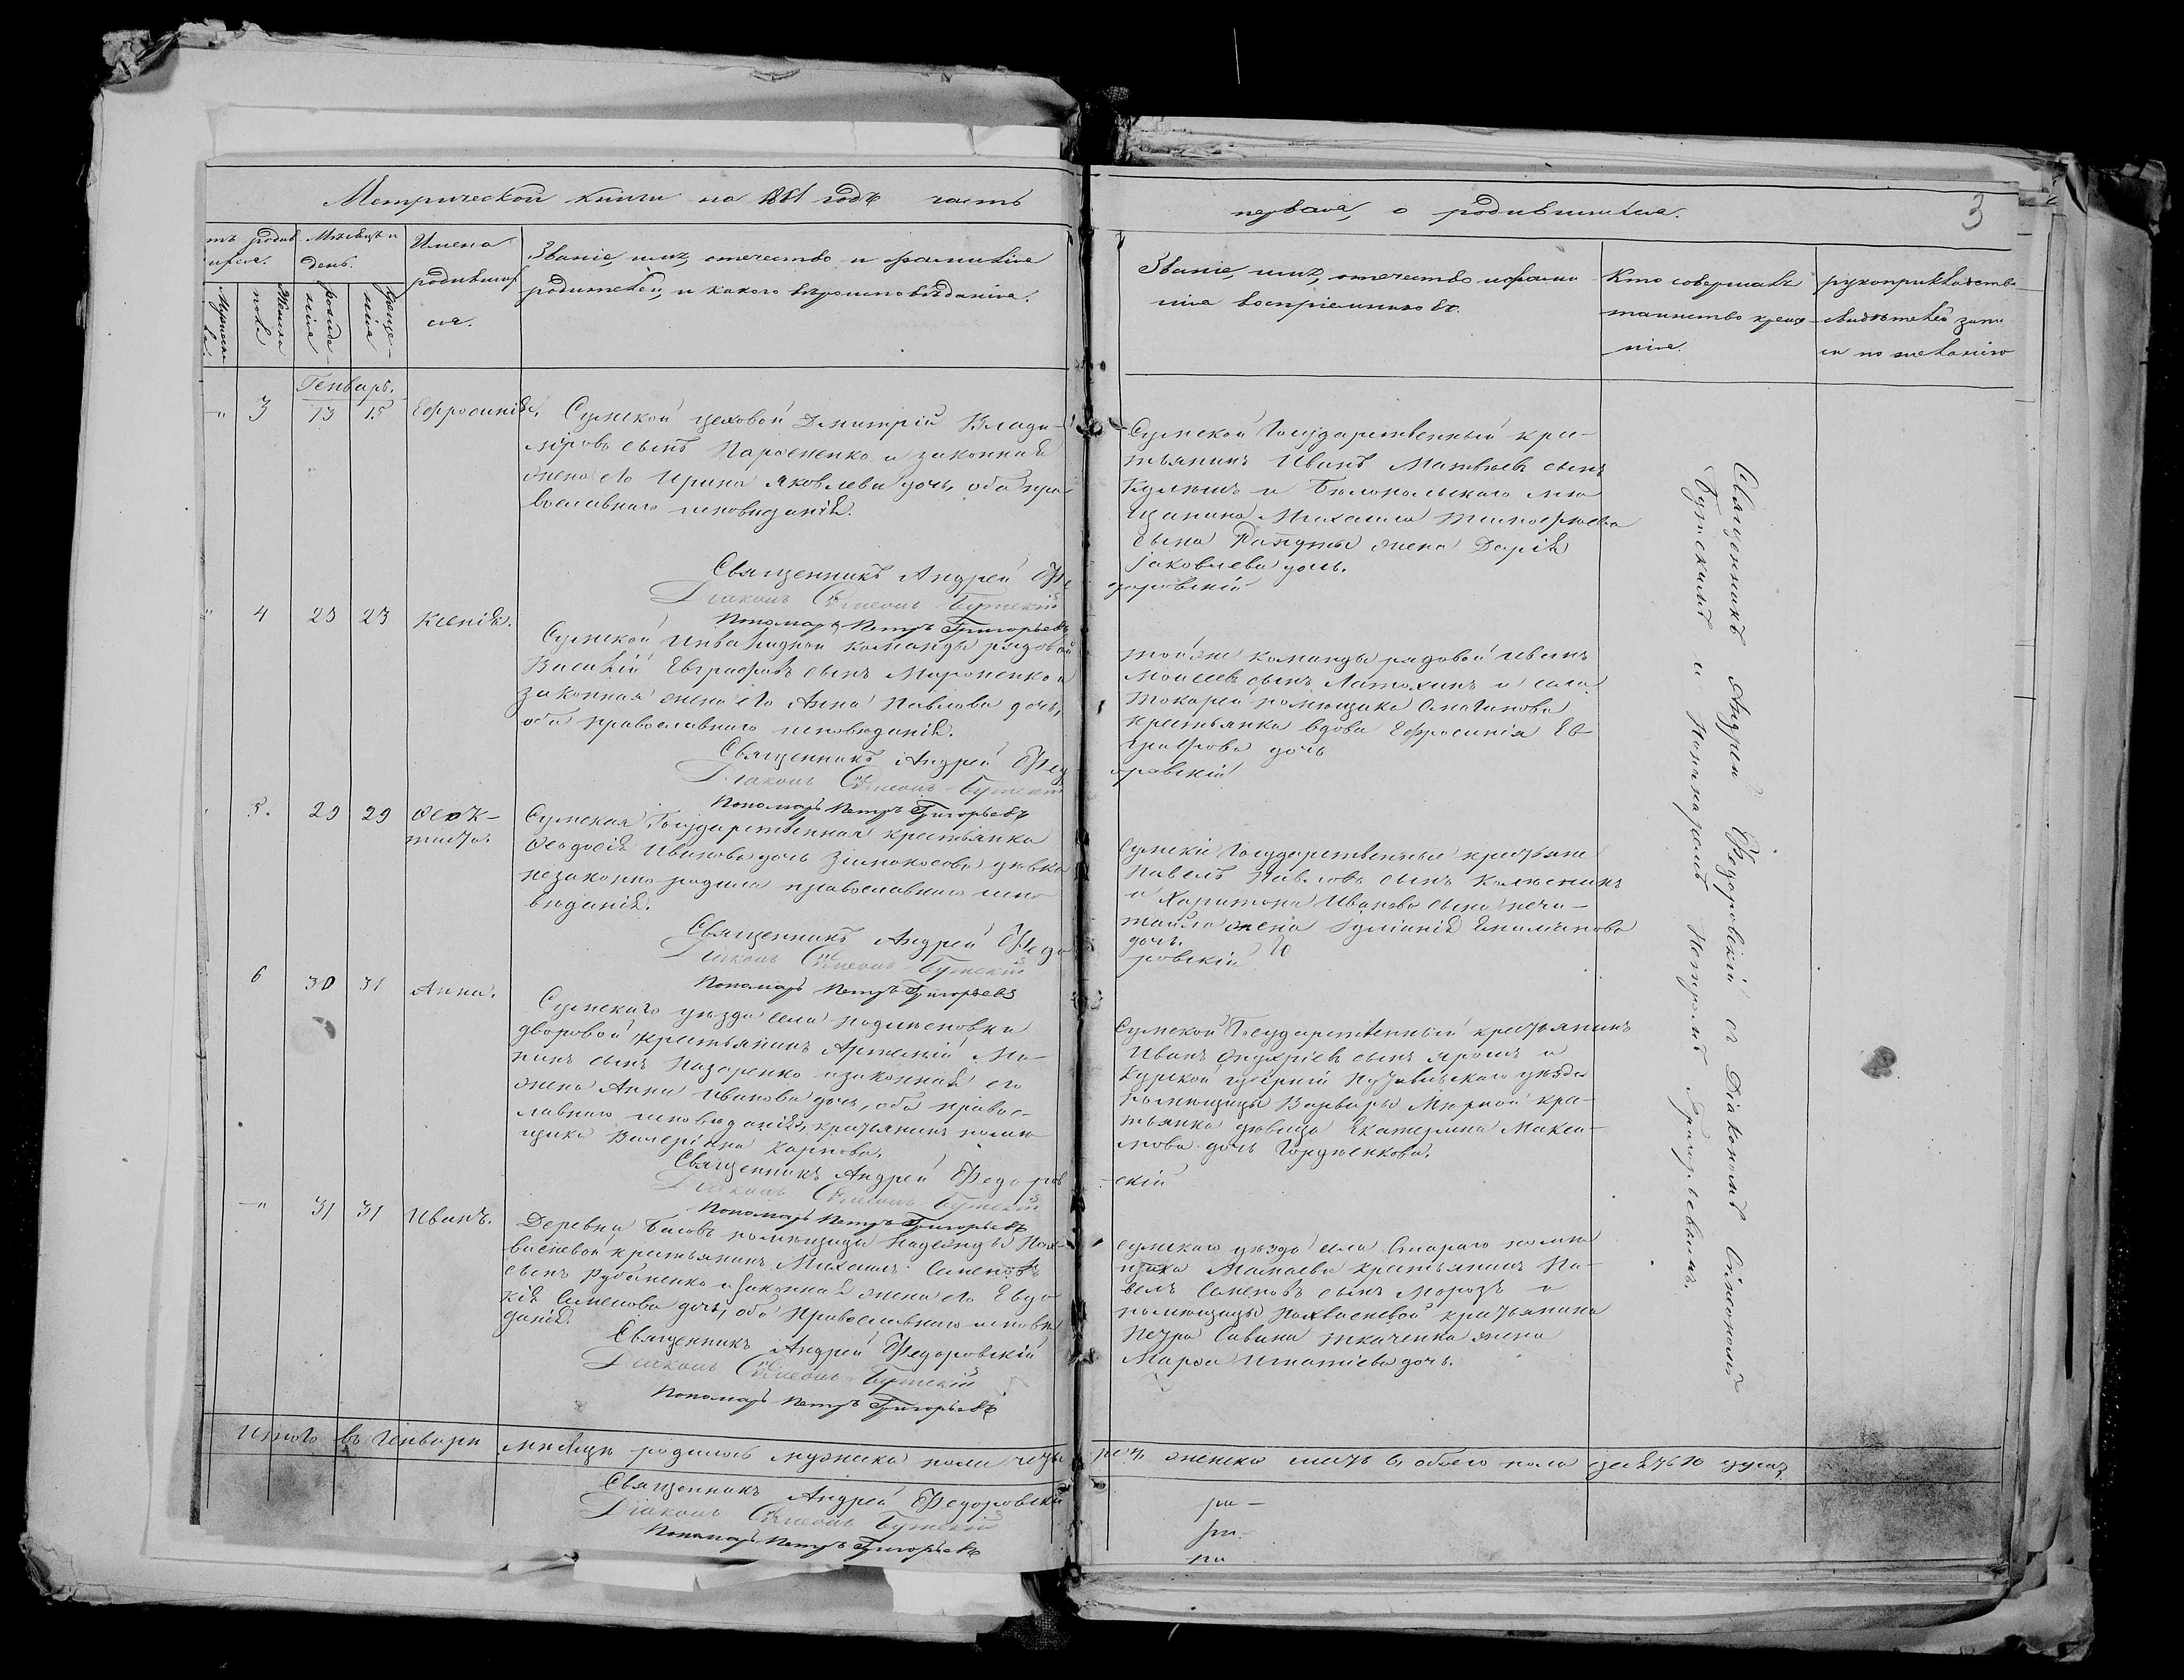 Метрической книги на 1861 годъ часть
первая, о родившихся.
3
Мѣсяцъ и день.
Имена родившихся.
Званіе, имя, отечество и фамилія
родителей, и какого вѣроисповѣданія.
Званіе, имя, отечество и фамилія воспріемниковъ.
Кто совершалъ таинство крещенія.
рукоприкладство свидѣтелей записи по желанію
Мужеска
пола
Женска
рожденія
крещенія
Генварь.
" 3 13 15 Ефросинія.
Сумской цеховой Димитрій Влади-
міровъ сынъ Пархоменко и законная
жена его Ирина Яковлева дочь, оба пра-
вославнаго исповѣданія.
Священникъ Андрей Ѳедоровскій
Діаконъ Симеонъ Бутскій
Пономарь Петръ Григорьевъ
Сумской Государственный кре-
стьянинъ Иванъ Матвѣевъ сынъ
и Бѣлопольскаго мѣ-
щанина Михаила Тимофѣева
сына жена Дарія
Яковлева дочь.
" 4 23 23 Ксенія.
Сумской Инвалидной команды рядовой
Василій Евграфовъ сынъ Мироненко и
законная жена его Анна Павлова дочь,
оба православнаго исповѣданія.
Священникъ Андрей Ѳедоровскій
Діаконъ Симеонъ Бутскій
Пономарь Петръ Григорьевъ
той же команды рядовой Иванъ
Моисеевъ сынъ и села
Токарей помѣщика
крестьянка вдова Ефросинія Ев-
графова дочь
5. 29 29 Ѳеок-
тиста.
Сумская Государственная крестьянка
Ѳеодосія Иванова дочь Зимокосова дѣвка
незаконно родила православнаго испо-
вѣданія.
Священникъ Андрей Ѳедоровскій
Діаконъ Симеонъ Бутскій
Пономарь Петръ Григорьевъ
Сумскіе Государственные крестьяне
Павелъ Павловъ сынъ
и Харитона Иванова сына Нечи-
тайла жена Іуліанія
дочь.
6 30 31 Анна.
Сумскаго уѣзда села Подлесновки
дворовой крестьянинъ Артемій
сынъ Назаренко и законная его
жена Анна Иванова дочь, оба правос-
лавнаго исповѣданія, крестьянинъ помѣ-
щика Валеріана Карпова.
Священникъ Андрей Ѳедоровскій
Діаконъ Симеонъ Бутскій
Пономарь Петръ Григорьевъ
Сумской Государственный крестьянинъ
Иванъ Онуфріевъ сынъ и
Курской губерніи Путивльскаго уѣзда
помѣщицы Варвары кре-
стьянка дѣвица Екатерина Макси-
мова дочь Гордѣенкова.
" 31 31 Иванъ.
Деревни Басовъ помѣщицы Надежды Пох-
висневой крестьянинъ Михаилъ Семеновъ
сынъ Рубаненко и законная жена его Евдо-
кія Семенова дочь, оба Православнаго исповѣ-
данія.
Священникъ Андрей Ѳедоровскій
Діаконъ Симеонъ Бутскій
Пономарь Петръ Григорьевъ
Сумскаго уѣзда села Стараго помѣ-
щика крестьянинъ Па-
велъ Семеновъ сынъ Морозъ и
помѣщицы Похвисневой крестьянина
Петра Савина Ткаченка жена
Марѳа Игнатіева дочь.
Священникъ Андрей Ѳедоровскій съ Діакономъ Симеономъ
Бутскимъ и Пономаремъ Петромъ Григорьевымъ.
Итого въ Генварѣ мѣсяцѣ родилось мужеска пола четыре 4, женска шесть 6, обоего пола десять 10 душъ
Священникъ Андрей Ѳедоровскій
Діаконъ Симеонъ Бутскій
Пономарь Петръ Григорьевъ